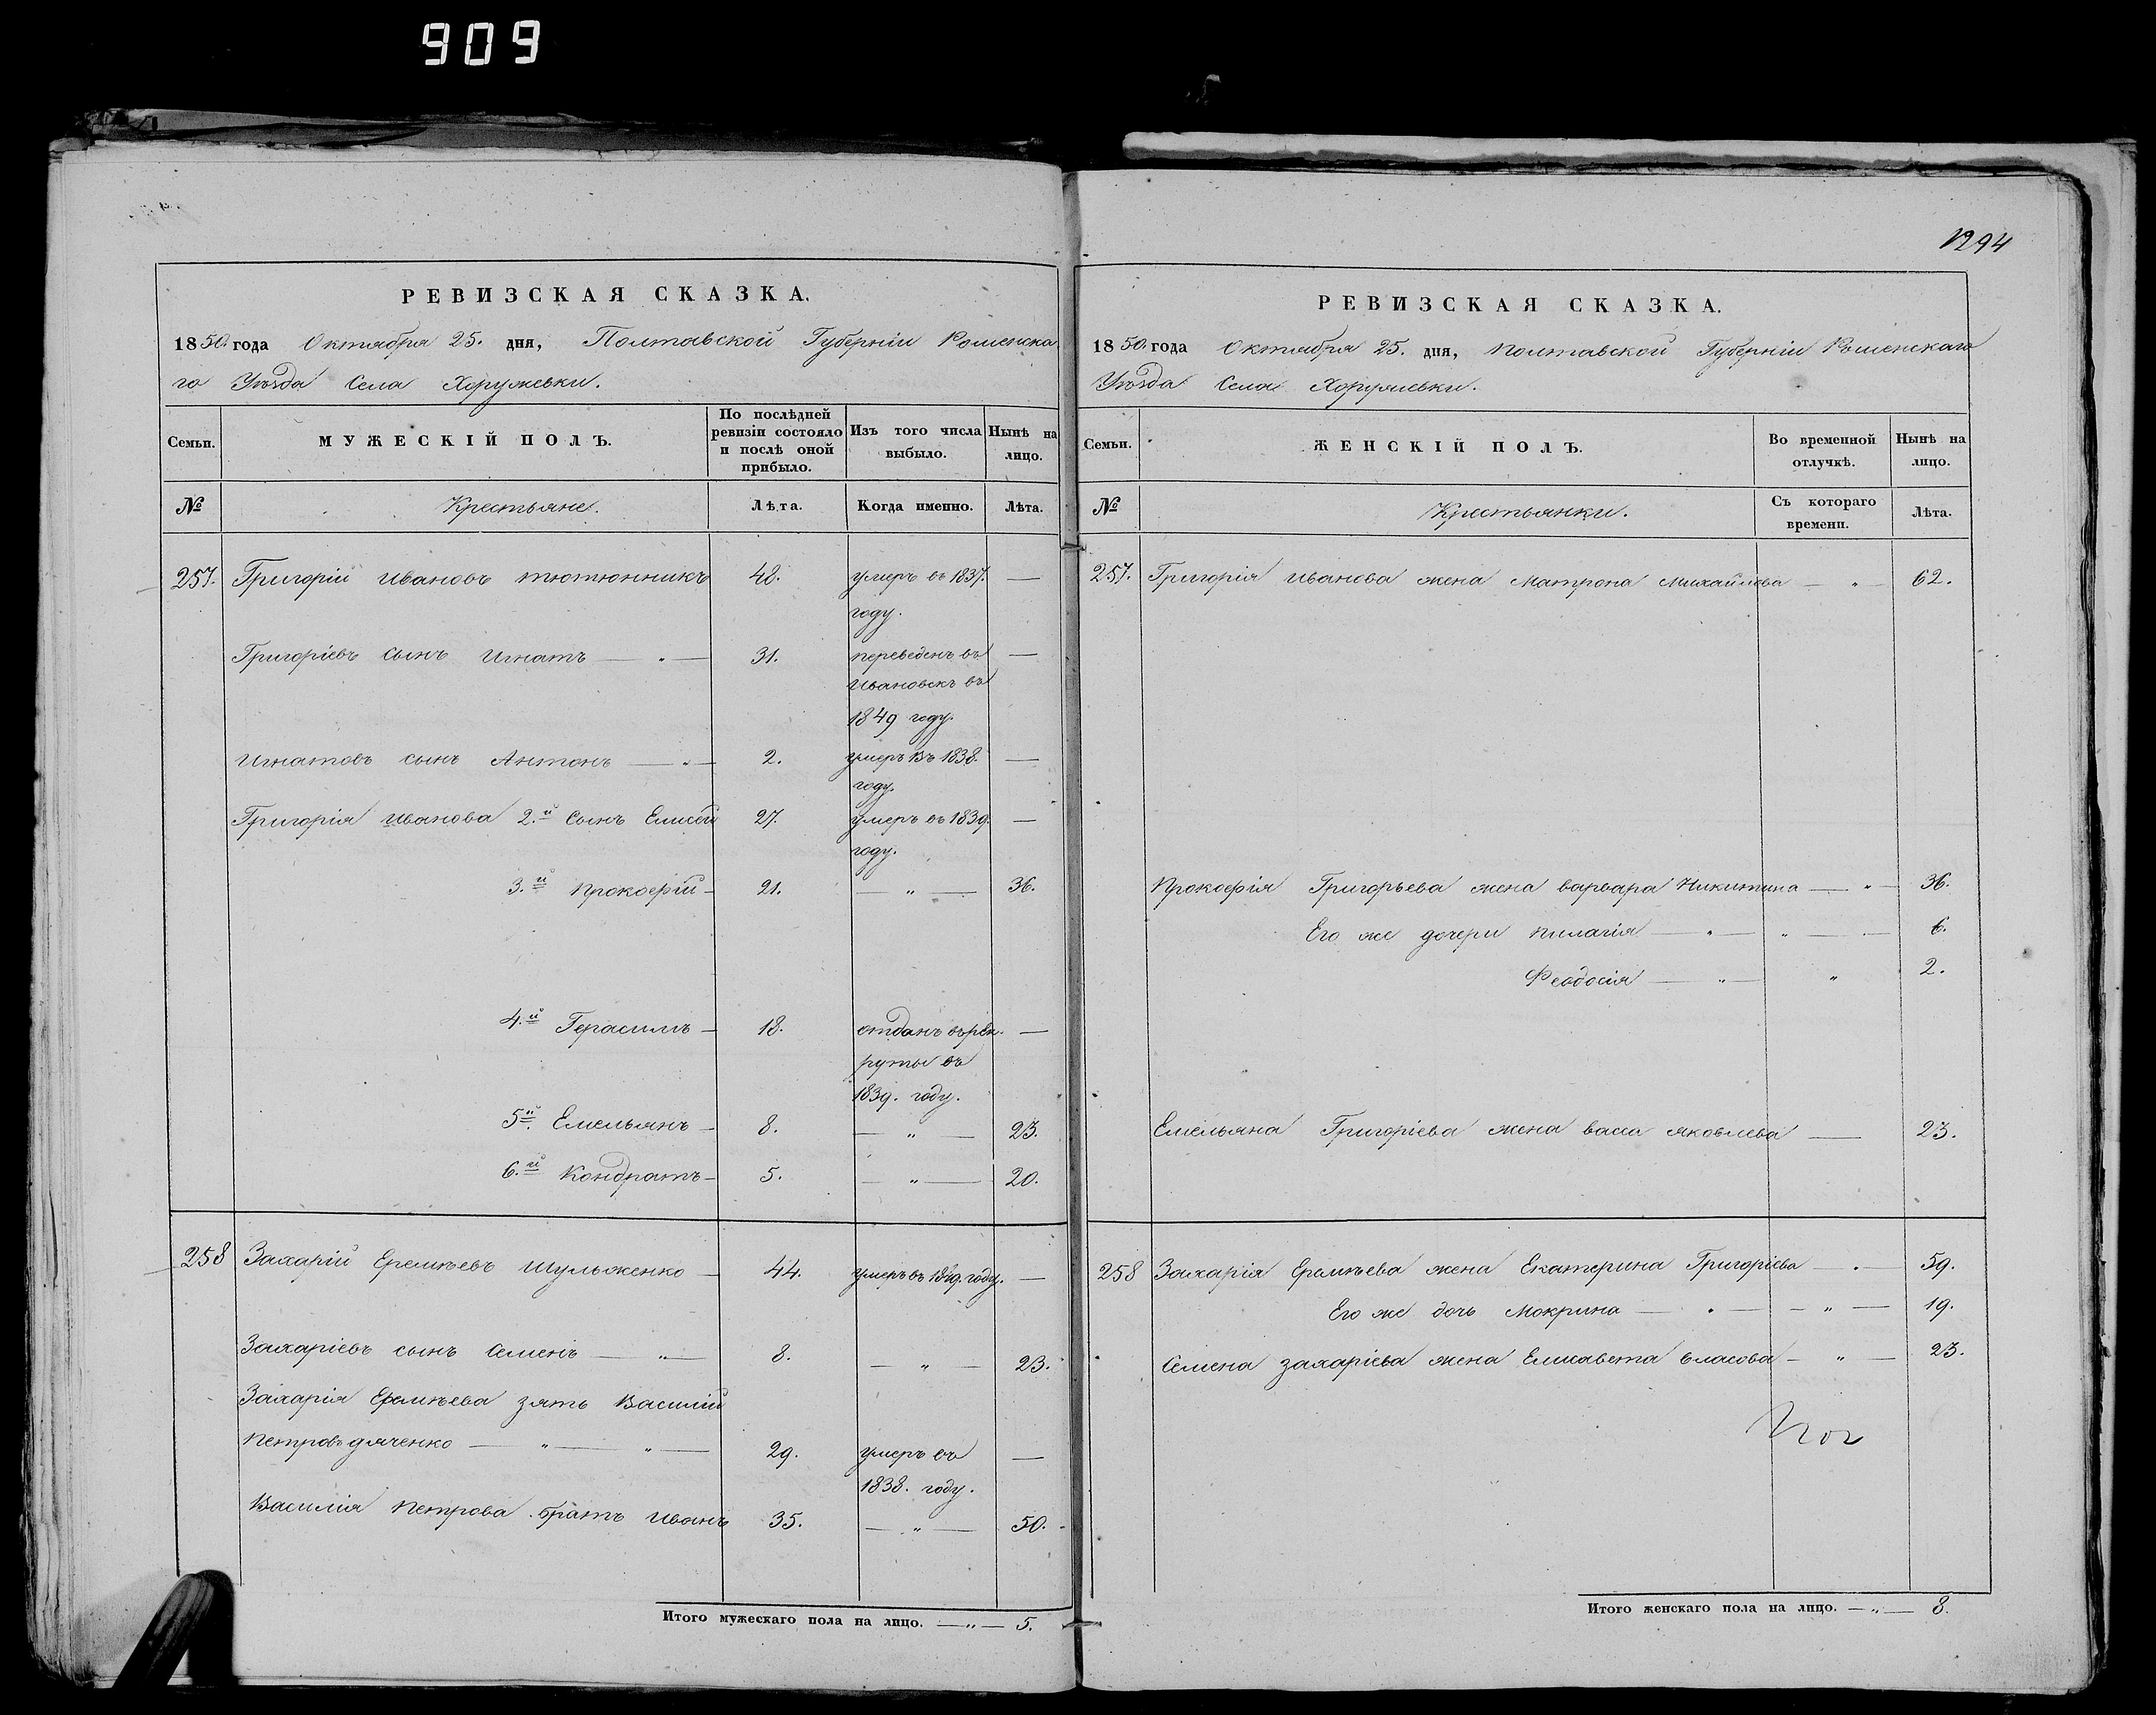 909
1294
РЕВИЗСКАЯ СКАЗКА.
1850. года Октября 25. дня, Полтавской Губерніи Роменска
го Уѣзда Села Хоружевки.
Семьи. МУЖЕСКІЙ ПОЛЪ. По послѣдней ревизіи состояло и послѣ оной прибыло. Изъ того числа выбыло. Нынѣ на лицо.
№ Крестьяне. Лѣта. Когда именно. Лѣта.
257. Григорій Ивановъ тютюнникъ 48. умеръ въ 1837. —
году.
Григоріевъ сынъ Игнатъ — „ — 31. переведенъ въ —
Ивановскъ въ
1849 году.
Игнатовъ сынъ Антонъ — „ — 2. умеръ въ 1838. —
году.
Григорія Иванова 2.й сынъ Елисей 27. умеръ въ 1839. —
году.
3.й Прокофій — 21. — „ — 36.
4.й Герасимъ — 18. отданъ въ рек- —
руты въ
1839. году.
5.й Емельянъ — 8. — „ — 23.
6.й Кондратъ — 5. — „ — 20.
258 Захарій Еремѣевъ Шульженко — 44. умеръ въ 1849. году. —
Захаріевъ сынъ Семенъ — „ — 8. — „ — 23.
Захарія Еремѣева зять Василій
Петровъ дяченко — „ — „ — 29. умеръ въ —
1838. году.
Василія Петрова братъ Иванъ 35. — „ — 50.
Итого мужескаго пола на лицо. — „ — 5.
РЕВИЗСКАЯ СКАЗКА.
1850. года Октября 25. дня, Полтавской Губерніи Роменскаго
Уѣзда Села Хоружевки.
Семьи. ЖЕНСКІЙ ПОЛЪ. Во временной отлучкѣ. Нынѣ на лицо.
№ Крестьянки. Съ котораго времени. Лѣта.
257. Григорія Иванова жена Матрона Михайлова — „ — 62.
Прокофія Григорьева жена варвара Никитина — „ — 36.
Его же дочери Пилагія — „ — „ — 6.
Феодосія — „ — „ 2.
Емельяна Григоріева жена васса яковлева — 23.
258 Захарія Еремѣева жена Екатерина Григоріева — „ — 59.
Его же дочь Мокрина — „ — „ — 19.
Семена захаріева жена Елисавета власова — „ — 23.
Итого женскаго пола на лицо. — „ — 8.